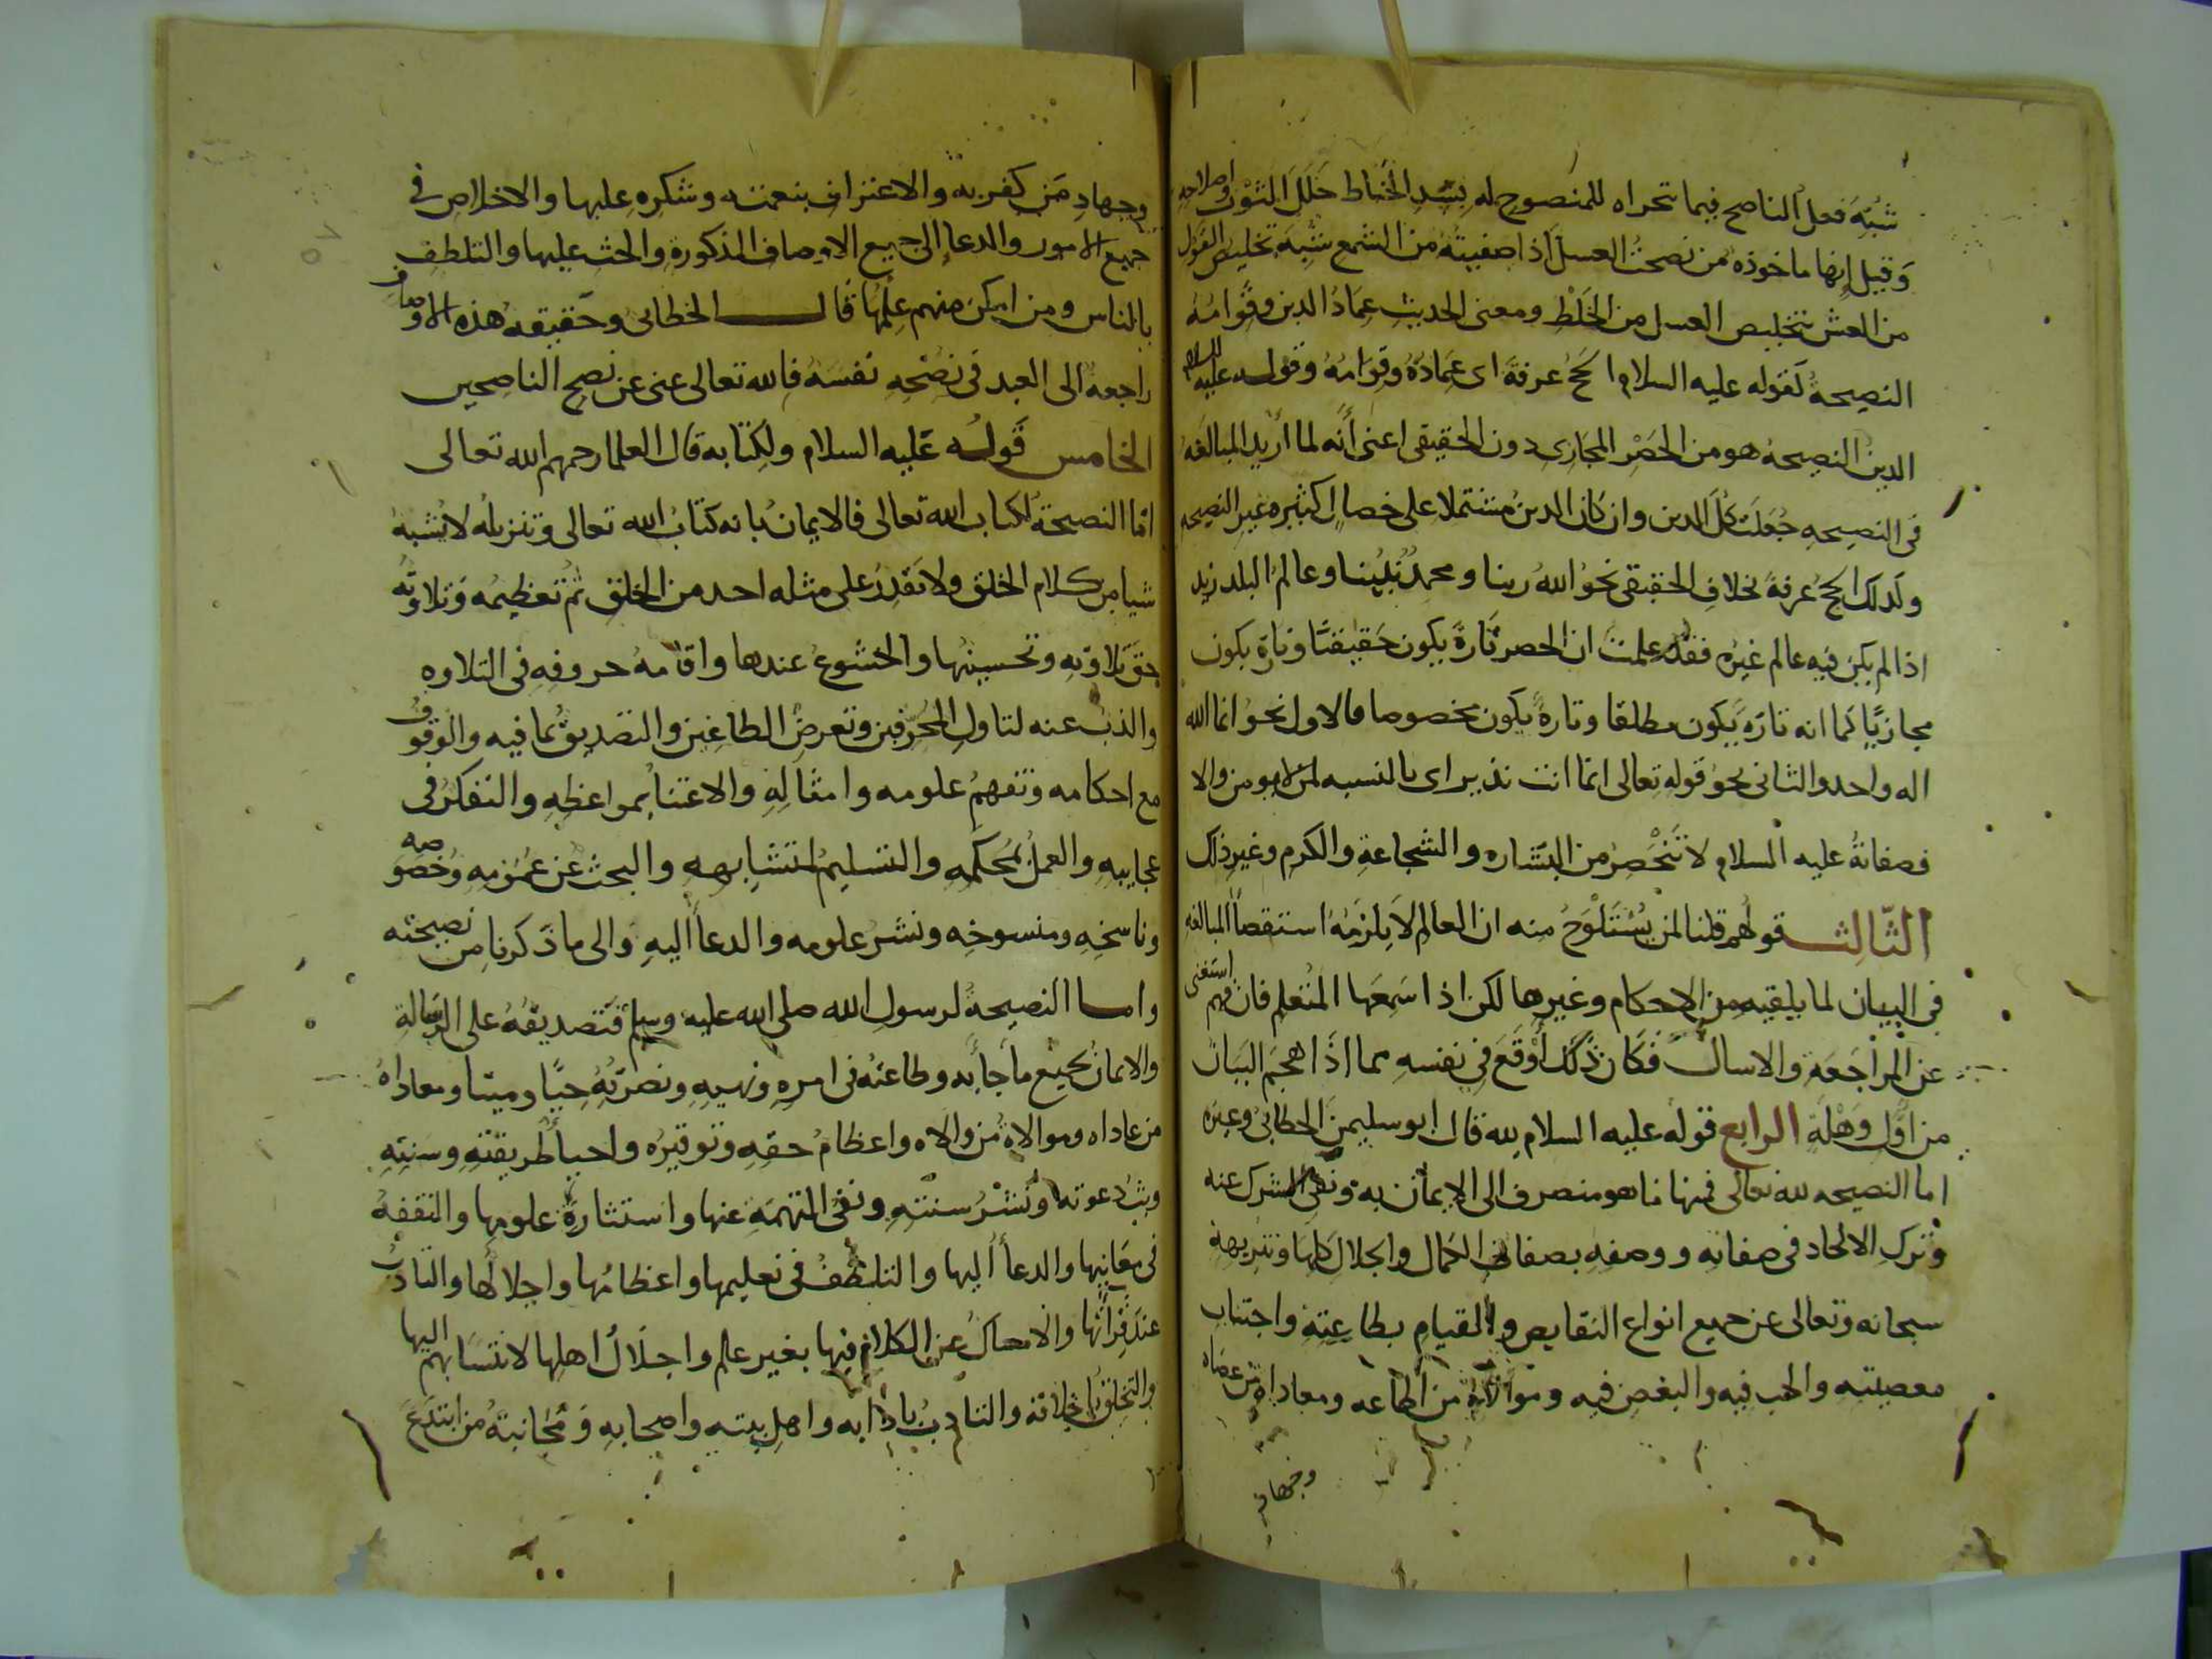 شُبِّهَ فعل الناصح فيما تحراه للمنصوح له بسَدِ الخياط خَلَلَ الثوب واصلاحه
وَقيل إنها ماخوذه من نصحتُ العسل اذا صفيتَه من الشمع شُبِّهَ تخليص القول
من الغش بتخليص العسل من الخَلْطِ ومعنى الحديث عِمَادُ الدين وقِوَامُهُ
النصيحةُ كقوله عليه السلام الحجُ عرفةُ اى عِمَادُهُ وقِوَامُهُ وقوله عليه السلم
الدين النصيحة هو من الحَصْرِ المجازى دون الحقيقى اعنى أنَّه لما أُرِيدَ المبالغة
فى النصيحه جُعِلَت كُلَّ الدين وان كان الدين مُشتملا على خصال كثيره غير النصيحه
وكذلك الحجُ عرفةُ بخلاف الحقيقى نحوُ اللهُ ربنا ومحمدٌ نَبِيُّنا وعالمُ البلد زيد
اذا لم يكن فيه عالم غيرُه فقد علمتَ ان الحصر تَارَةً يكون حَقيقيًّا وتارة يكون
مجازيًّا كما انه تارَة يكون مطلقا وتارةً يكون مخصوصا فالاول نحو انما الله
اله واحد والثانى نحو قوله تعالى انما انت نذير اى بالنسبه لمن لا يومن والا
فصفاتهُ عليه السلام لا تَنْحَصِرُ من البشاره والشجاعةِ والكرم وغير ذلك
الثَّالِث قولُهم قلنا لمن يُسْتَلْوَحُ منه ان العالم لا يلزمُهُ استقصاءُ المبالغه
فى البيان لما يلقيه من الاحكام وغيرها لكن اذا سَمِعَها المتعلم فان فهم استغنى
عن المراجَعَة والا سال فكَانَ ذلكَ أَوْقَعَ فِي نفسهِ مما اذا هجم البيَان
من أوَّل وَهْلَةٍ الرابع قوله عليه السلام لله قال ابو سليمن الخطابىُّ وغيره
اما النصيحه لله تعالى فمنها ما هو منصرف الى الإيمان به ونفى الشرك عنه
وتركِ الالحاد فى صفاتِه ووصفِهِ بصفات الكمال والجلال كلها وتنزيههِ
سبحانه وتعالى عن جميع انواع النقايص والقيام بطاعتِهِ واجتناب
معصيتِهِ والحب فيه والبغض فيه وموالاة من اطاعه ومعاداة من عصاه
وجهاد
وجهادِ مَن كفر به والاعتراف بنعمته وشكره عليها والاخلاص فى
جميع الامور والدعاءِ الى جميع الاوصاف المذكورة والحث عليها والتلطف
بالناس ومن امكن منهم علمها قال الخطابى وحَقيقه هذه الاوصاف
راجعهٌ الى العبد فى نُصْحِهِ نفسَهُ فالله تعالى غنى عن نصح الناصحين
الخامس قَولُه عَليه السلام ولكِتابه قال العلما رحمهم الله تعالى
امّا النصيحةُ لكتاب الله تعالى فالايمانُ بانه كتابُ الله تعالى وتنزيلُه لا يُشبِهُ
شيا من كلام الخلق ولا يَقدِرُ على مثله احد من الخلق ثم تعظيمُه وَتلاوتُه
حَقَّ تِلاوتِهِ وتحسينُها والخشوعُ عندها واقامهُ حروفِه فى التلاوه
والذبُ عنه لتاولِ المحرِّفين وتعرضِ الطاغين والتصديقُ بما فيه والوقوفُ
مع احكامه وتفهمُ علومه وامثالِهِ والاعتناءُ بمواعظِهِ والتفكرُ فى
عجايبِهِ والعملُ بمُحكَمِهِ والتسليمُ لمتشابِههِ والبحثُ عن عُمُومِهِ وخُصوصه
وناسخِهِ ومنسوخِهِ ونشرُ علومِه والدعاءُ اليهِ والى ما ذكرنا من نصيحته
واما النصيحةُ لرسولِ الله صلى الله عليه وسلم فتصديقُهُ على الرسالةِ
والايمانُ بجميع ما جاء به وطاعتُهُ فى امره ونهيهِ ونصرتُهُ حيًّا وميتا ومعاداةُ
من عاداه وموالاةُ من والاه واعظامُ حقهِ وتوقيرُه واحياءُ طريقتِهِ وسنتِهِ
وبثُ دعوته ونَشْرُ سنتِهِ ونفىُ التهمَة عنها واستثارةُ علومها والتفقهُ
فى معَانِيها والدعاءُ اليها والتلطُّفُ فى تعليمها واعظامُها واجلالُها والتادُبُ
عندَ قراتها والامساكُ عن الكلام فيها بغير علم واجلالُ اهلها لانتسابهم اليها
والتخلقُ باخلاقه والتادبُ بادابه واهل بيته واصحابهِ وَمُجَانبَةُ من ابتدَعَ